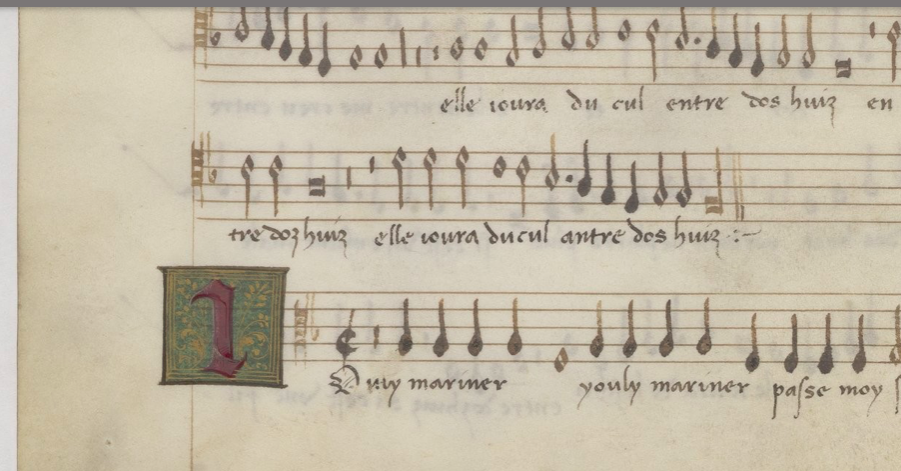 elle ioura du cul entre dos huiz en
tre doz huiz elle ioura du cul antre dos huiz
I
Ouly mariner youly mariner passe moy